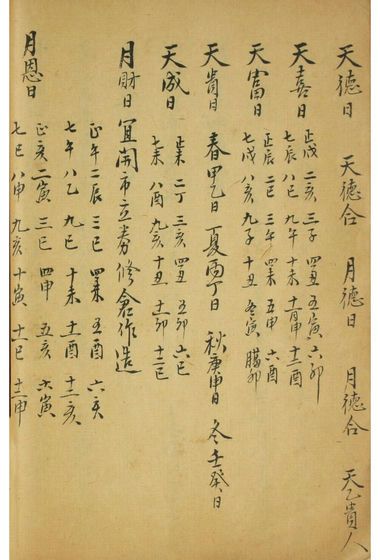 天德日 天德合 月德日 月德合 天乙貴人
天喜日 正戌 二亥 三子 四丑 五寅 六卯
七辰 八巳 九午 十未 十一申 十二酉
天富日 正辰 二巳 三午 四未 五申 六酉
七戌 八亥 九子 十丑 冬寅 臘卯
天貴日 春甲乙日 夏丙丁日 秋庚申日 冬壬癸日
天成日 正未 二丁 三亥 四丑 五卯 六巳
七未 八酉 九亥 十丑 十一卯 十二巳
月財日 宜開市立券修倉作造
正午 二辰 三巳 四未 五酉 六亥
七午 八乙 九巳 十未 十一酉 十二亥
月恩日 正亥 二寅 三巳 四申 五亥 六寅
七巳 八申 九亥 十寅 十一巳 十二申